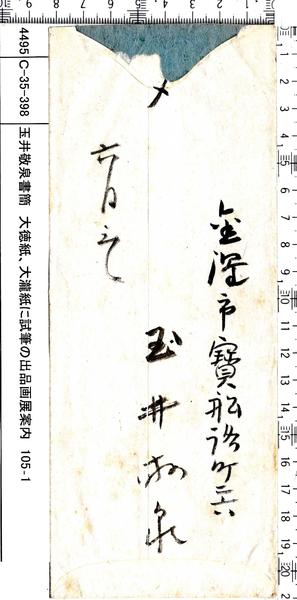 4495 C-35-398 玉井敬泉書簡 大徳紙、大瀧紙に試筆の出品画展案内 105-1
〆
金澤市寶船路町
六月
玉井敬泉